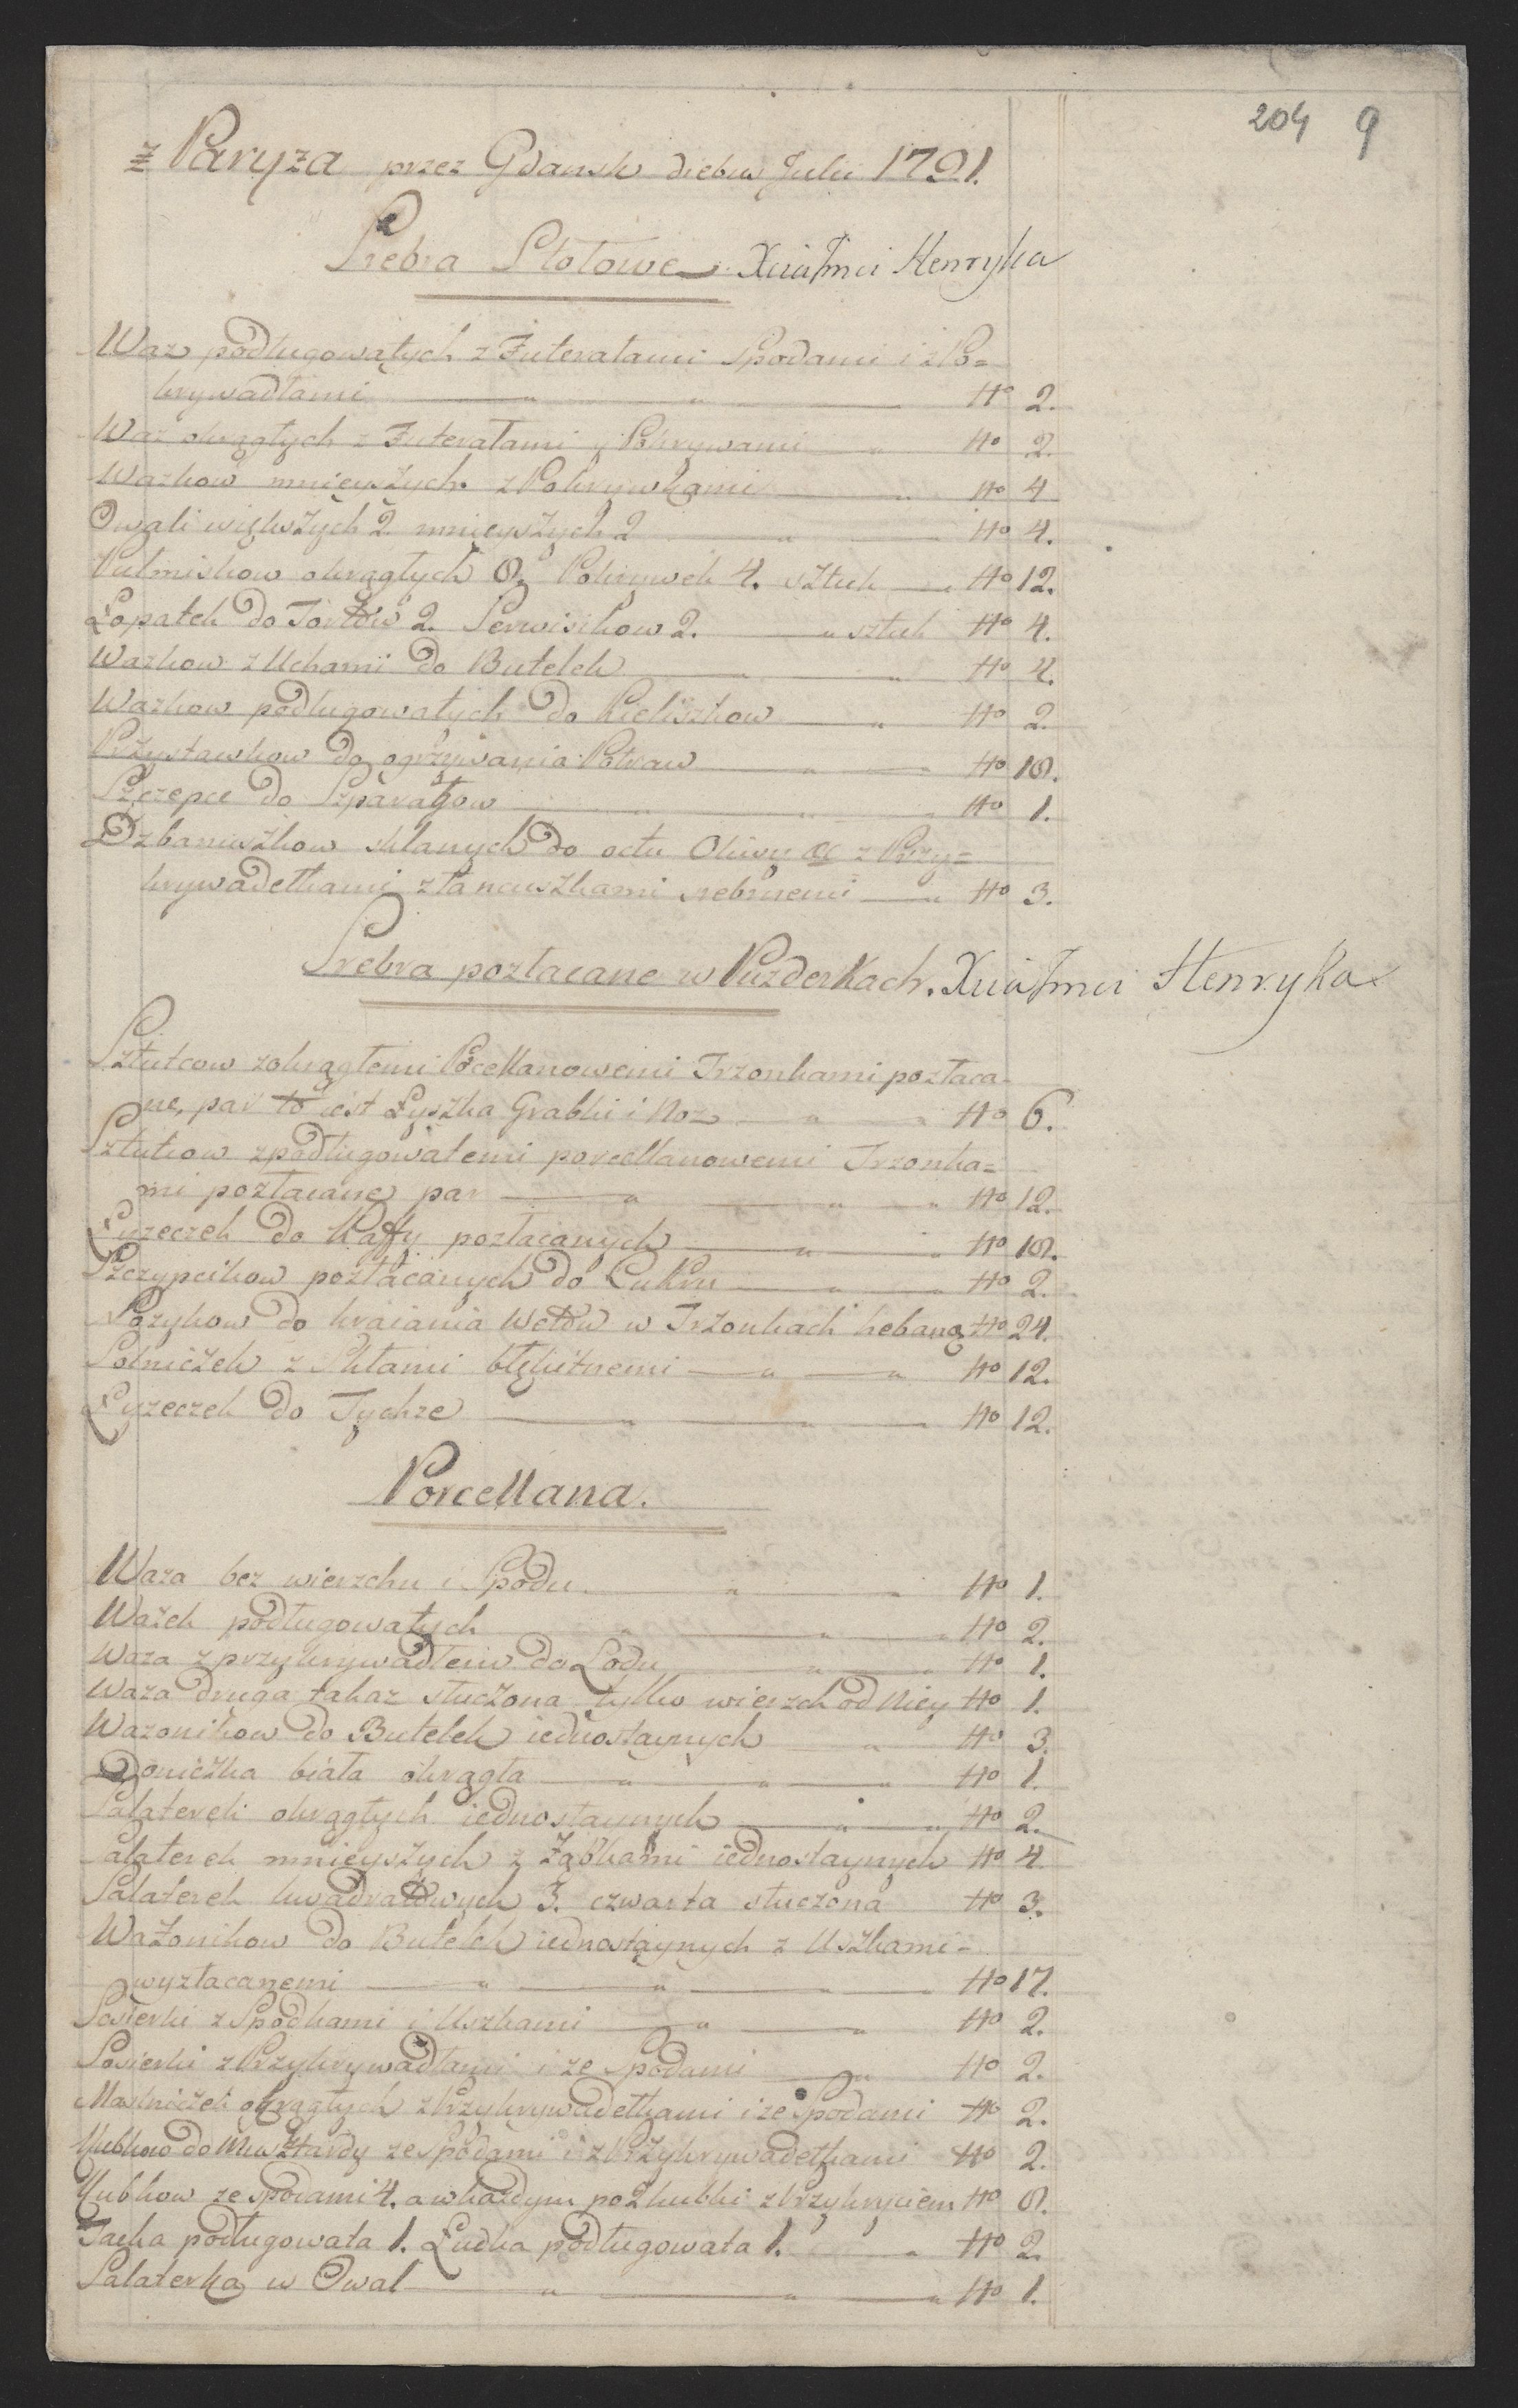 204 9
z Paryza przez Gdansk diebus Julii 1791.
Srebra Stołowe Xcia Jmci Henryka
Waz podługowatych z Futerałami Spodami i z Po=
krywadłami No 2.
Waz okrągłych z Futerałami y Pokrywami No 2.
Wazkow mnieyszych z Pokrywkami No 4
Owali większych 2 mnieyszych 2 No 4.
Pułmiskow okrągłych 8. Pokrywek 4. sztuk No 12.
Łopatek do Tortow 2. Serwisikow 2. sztuk No 4.
Wazkow z Uchami do Butelek No 4.
Wazkow podługowatych do Kieliszkow No 2.
Przystawkow do ogrzywania Potraw No 18.
Szczepce do Szparagow No 1.
Dzbanuszkow sklanych do octu Oliwy z Przy=
krywadełkami z łancuszkami srebrnemi No 3.
Srebra pozłacane w Puzderkach. Xcia Jmci Henryka
Sztućcow z okrągłemi Porcellanowemi Trzonkami pozłaca=
ne, par to iest Łyszka Grabki i Noz No 6.
Sztućcow z podługowatemi porcellanowemi Trzonka=
mi pozłacane par No 12.
Łyzeczek do Kaffy pozłacanych No 18.
Szczypcikow pozłacanych do Cukru No 2.
Nozykow do kraiania Wetow w Trzonkach heban: No 24.
Solniczek z Szkłami błękitnemi No 12.
Łyzeczek do Tychze No 12.
Porcellana.
Waza bez wierzchu i Spodu No 1.
Wazek podługowatych No 2.
Waza z przykrywadłem do Lodu No 1.
Waza druga takaz stuczona tylko wierzch od Niey No 1.
Wazonikow do Butelek iednostaynych No 3.
Doniczka biała okrągła No 1.
Salaterek okrągłych iednostaynych No 2.
Salaterek mnieyszych z Ząbkami iednostaynych No 4.
Salaterek kwadratowych 3. czwarta stuczona No 3.
Wazonikow do Butelek iednostaynych z Uszkami=
wyzłacanemi No 17.
Sosierki z Spodkami i Uszkami No 2.
Sosierki z Przykrywadłami i ze Spodami No 2.
Maśniczek okrągłych z Przykrywadełkami i ze Spodami No 2.
Kubkow do Musztardy ze Spodami i z Przykrywadełkami No 2.
Kubkow ze spodami 4. a w kazdym po 2 kubki z Przykryciem No 8.
Tacka podługowata 1. Łudka podługowata 1. No 2
Salaterka w Owal No 1.